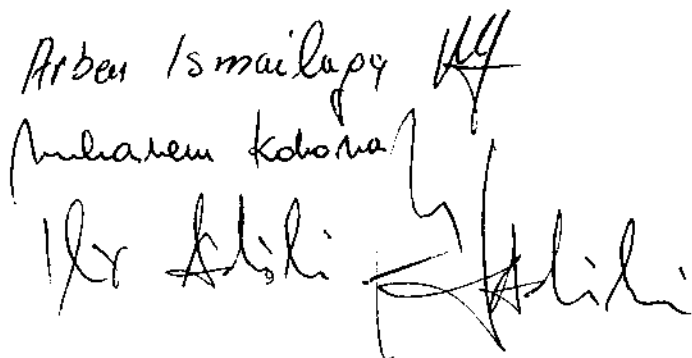 Arben Ismailaga
Muharem Kokona
Ilir Adili Adili